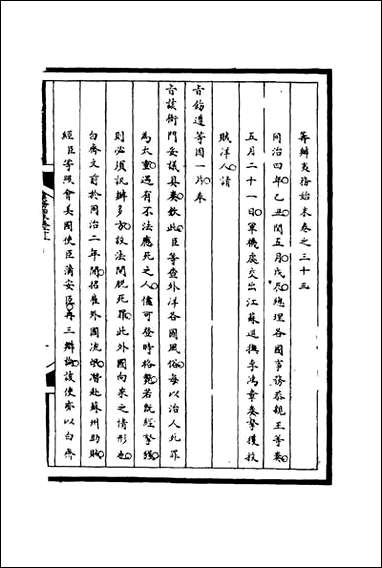 籌辦夷務始末卷之三十三
同治四年乙丑閏五月戊辰總理各國事務恭親王等奏
五月二十一日軍機處交出江蘇巡撫李鴻章奏拏獲投
賊洋人請
旨飭遵等因一片奉
旨該衙門妥議具奏欽此臣等查外洋各國風俗每以治人死罪
為太重遇有不法應死之人儘可登時格斃若既經拏獲
則必須訊辦多方設法開脫死罪此外國向來之情形也
白齊文前於同治二年間招雇外國流氓潛赴蘇州助賊
經臣等照會美國使臣蒲安臣再三辯論該使臣以白齊